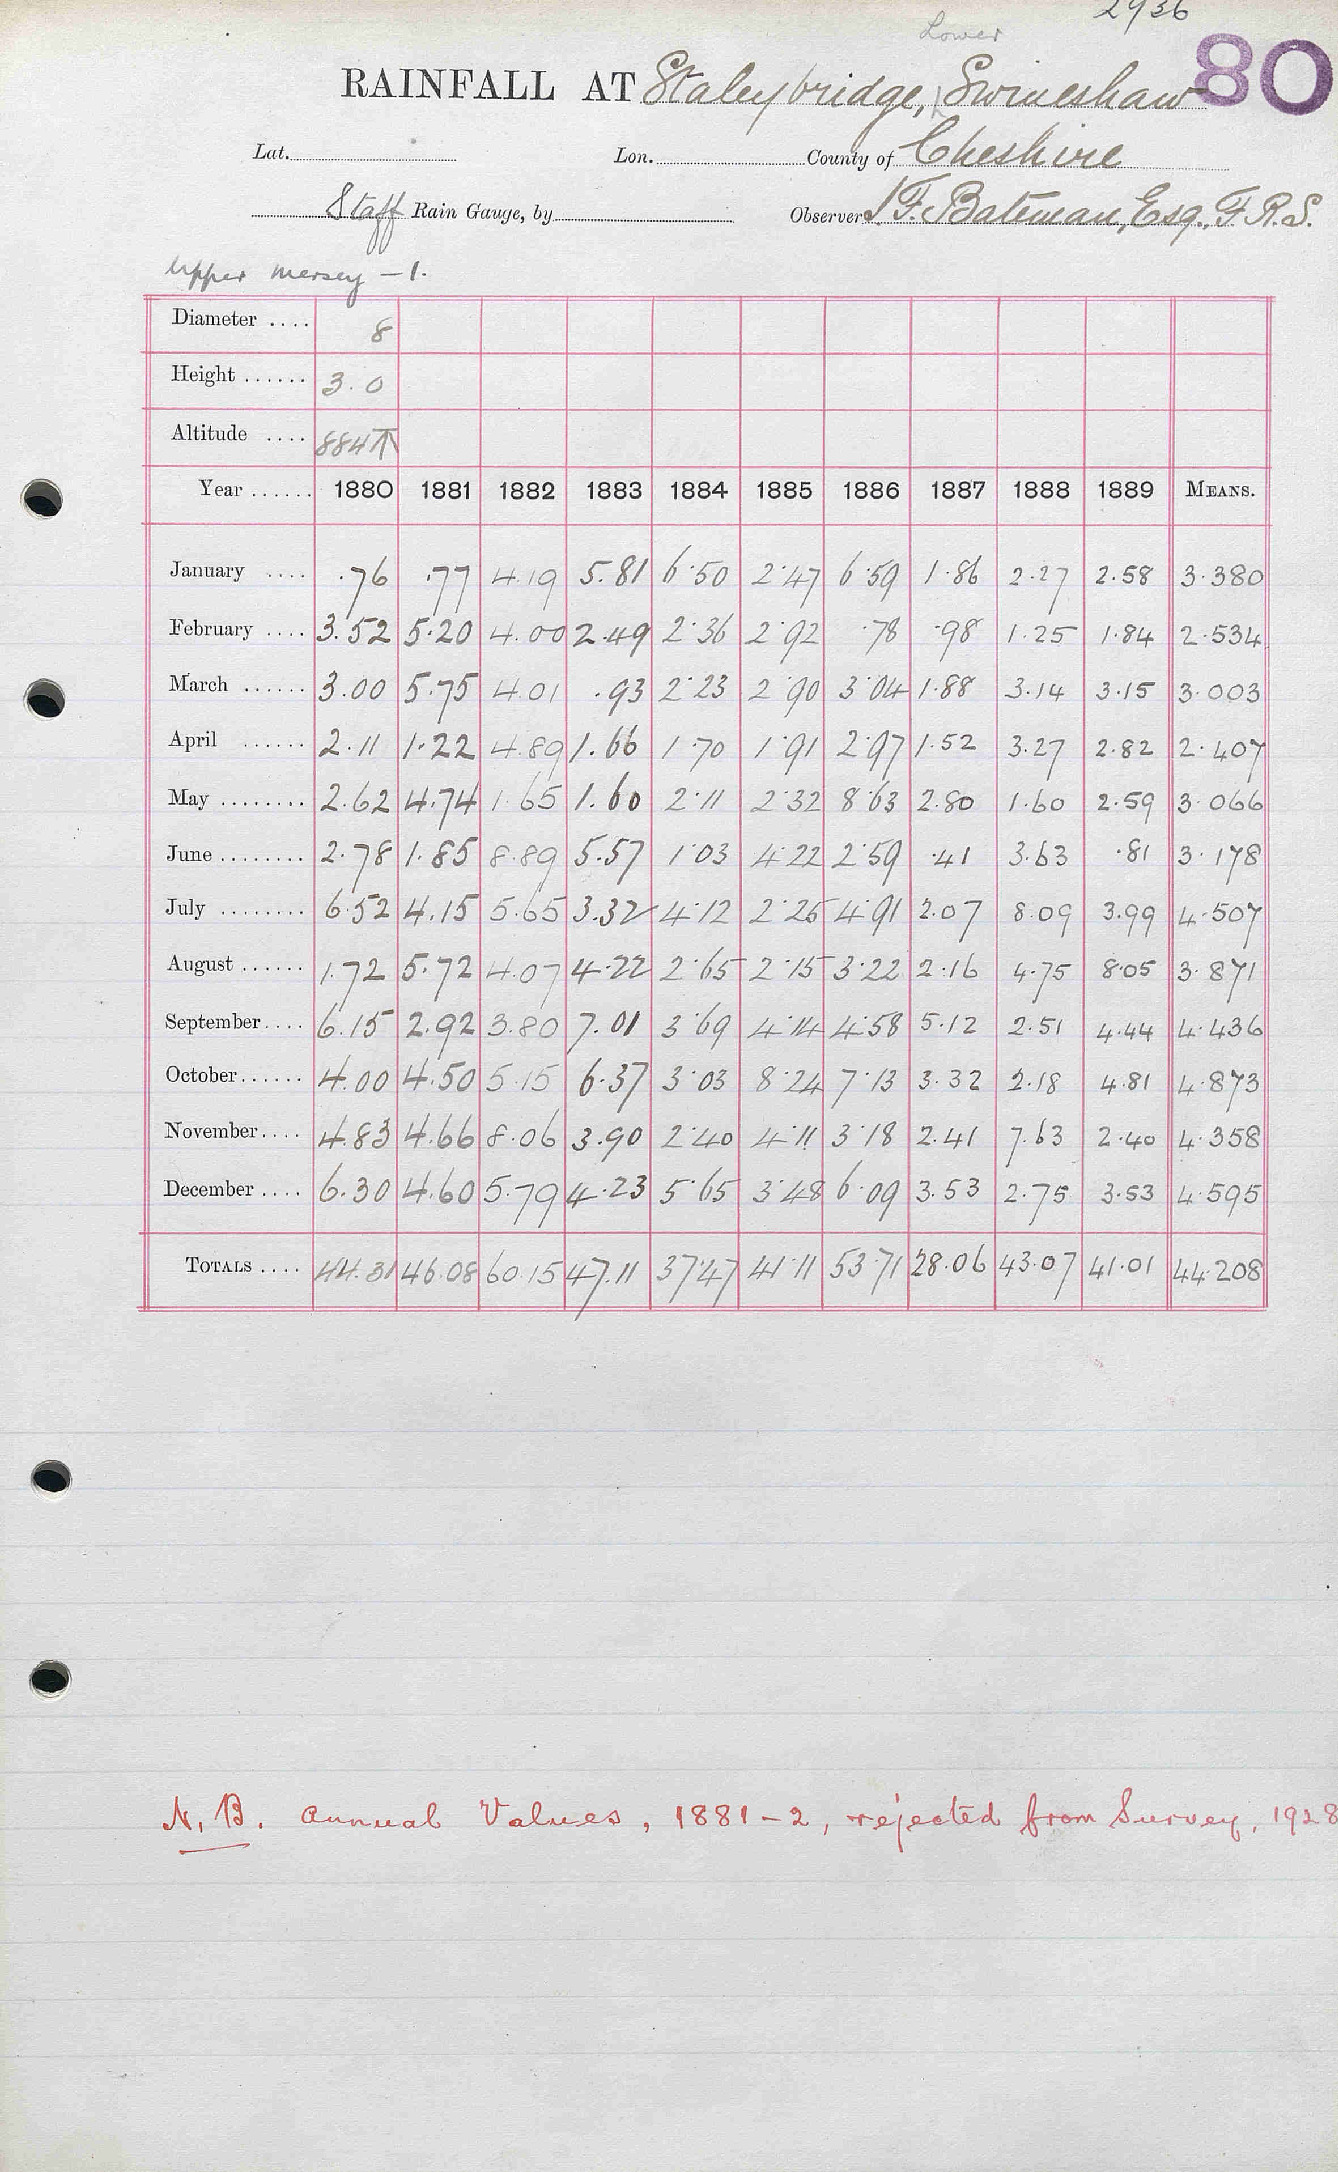 2936
Lower
80
RAINFALL AT Staleybridge, Swineshaw
Lat. Lon. County of Cheshire
Staff Rain Gauge, by Observer J F. Bateman, Esq., F.R.S.
Upper Mersey — 1.
Diameter .... 8
Height ...... 3.0
Altitude .... 884 ↑
Year ...... 1880 1881 1882 1883 1884 1885 1886 1887 1888 1889 MEANS.
January .... .76 .77 4.19 5.81 6.50 2.47 6.59 1.86 2.27 2.58 3.380
February .... 3.52 5.20 4.00 2.49 2.36 2.92 .78 .98 1.25 1.84 2.534
March ...... 3.00 5.75 4.01 .93 2.23 2.90 3.04 1.88 3.14 3.15 3.003
April ...... 2.11 1.22 4.89 1.66 1.70 1.91 2.97 1.52 3.27 2.82 2.407
May ........ 2.62 4.74 1.65 1.60 2.11 2.32 8.63 2.80 1.60 2.59 3.066
June ........ 2.78 1.85 8.89 5.57 1.03 4.22 2.59 .41 3.63 .81 3.178
July ........ 6.52 4.15 5.65 3.32 4.12 2.26 4.91 2.07 8.09 3.99 4.507
August ...... 1.72 5.72 4.07 4.22 2.65 2.15 3.22 2.16 4.75 8.05 3.871
September.... 6.15 2.92 3.80 7.01 3.69 4.14 4.58 5.12 2.51 4.44 4.436
October...... 4.00 4.50 5.15 6.37 3.03 8.24 7.13 3.32 2.18 4.81 4.873
November.... 4.83 4.66 8.06 3.90 2.40 4.11 3.18 2.41 7.63 2.40 4.358
December .... 6.30 4.60 5.79 4.23 5.65 3.48 6.09 3.53 2.75 3.53 4.595
TOTALS .... 44.31 46.08 60.15 47.11 37.47 41.11 53.71 28.06 43.07 41.01 44.208
N.B. Annual Values, 1881-2, rejected from Survey, 1928